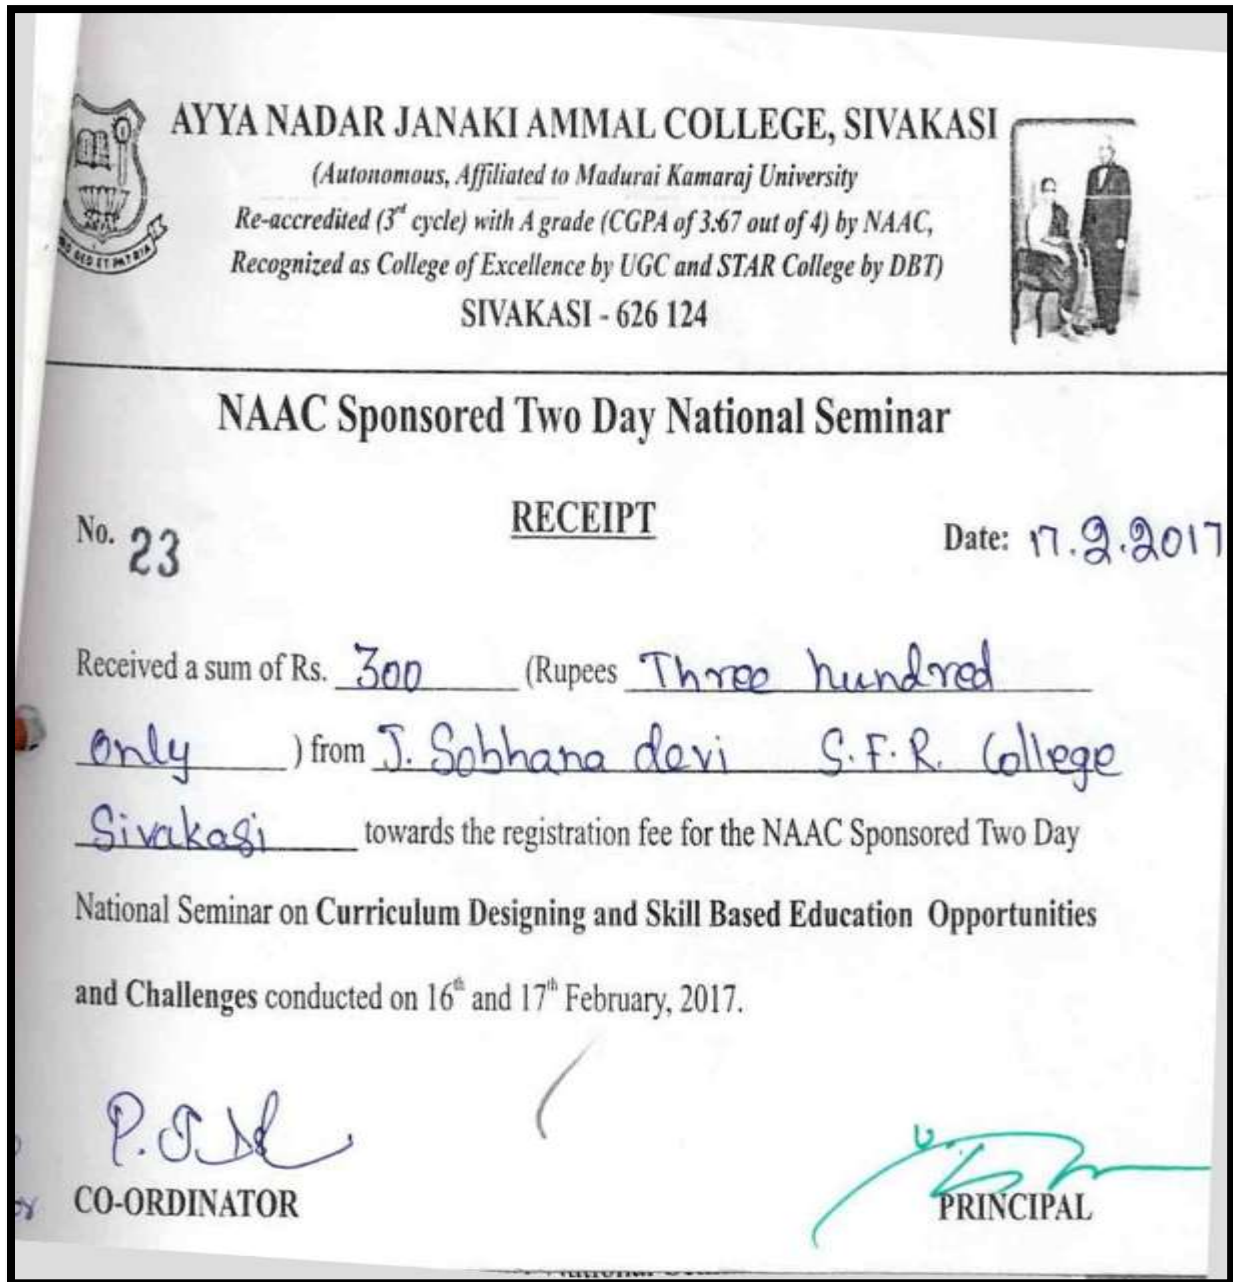 AYYA NADAR JANAKI AMMAL COLLEGE, SIVAKASI
(Autonomous, Affiliated to Madurai Kamaraj University
Re-accredited (3rd cycle) with A grade (CGPA of 3.67 out of 4) by NAAC,
Recognized as College of Excellence by UGC and STAR College by DBT)
SIVAKASI - 626 124
NAAC Sponsored Two Day National Seminar
RECEIPT
No. 23 Date: 17.2.2017
Received a sum of Rs. 300 (Rupees Three hundred
only ) from J. Sobhana devi S.F.R. College
Sivakasi towards the registration fee for the NAAC Sponsored Two Day
National Seminar on Curriculum Designing and Skill Based Education Opportunities
and Challenges conducted on 16th and 17th February, 2017.
CO-ORDINATOR PRINCIPAL